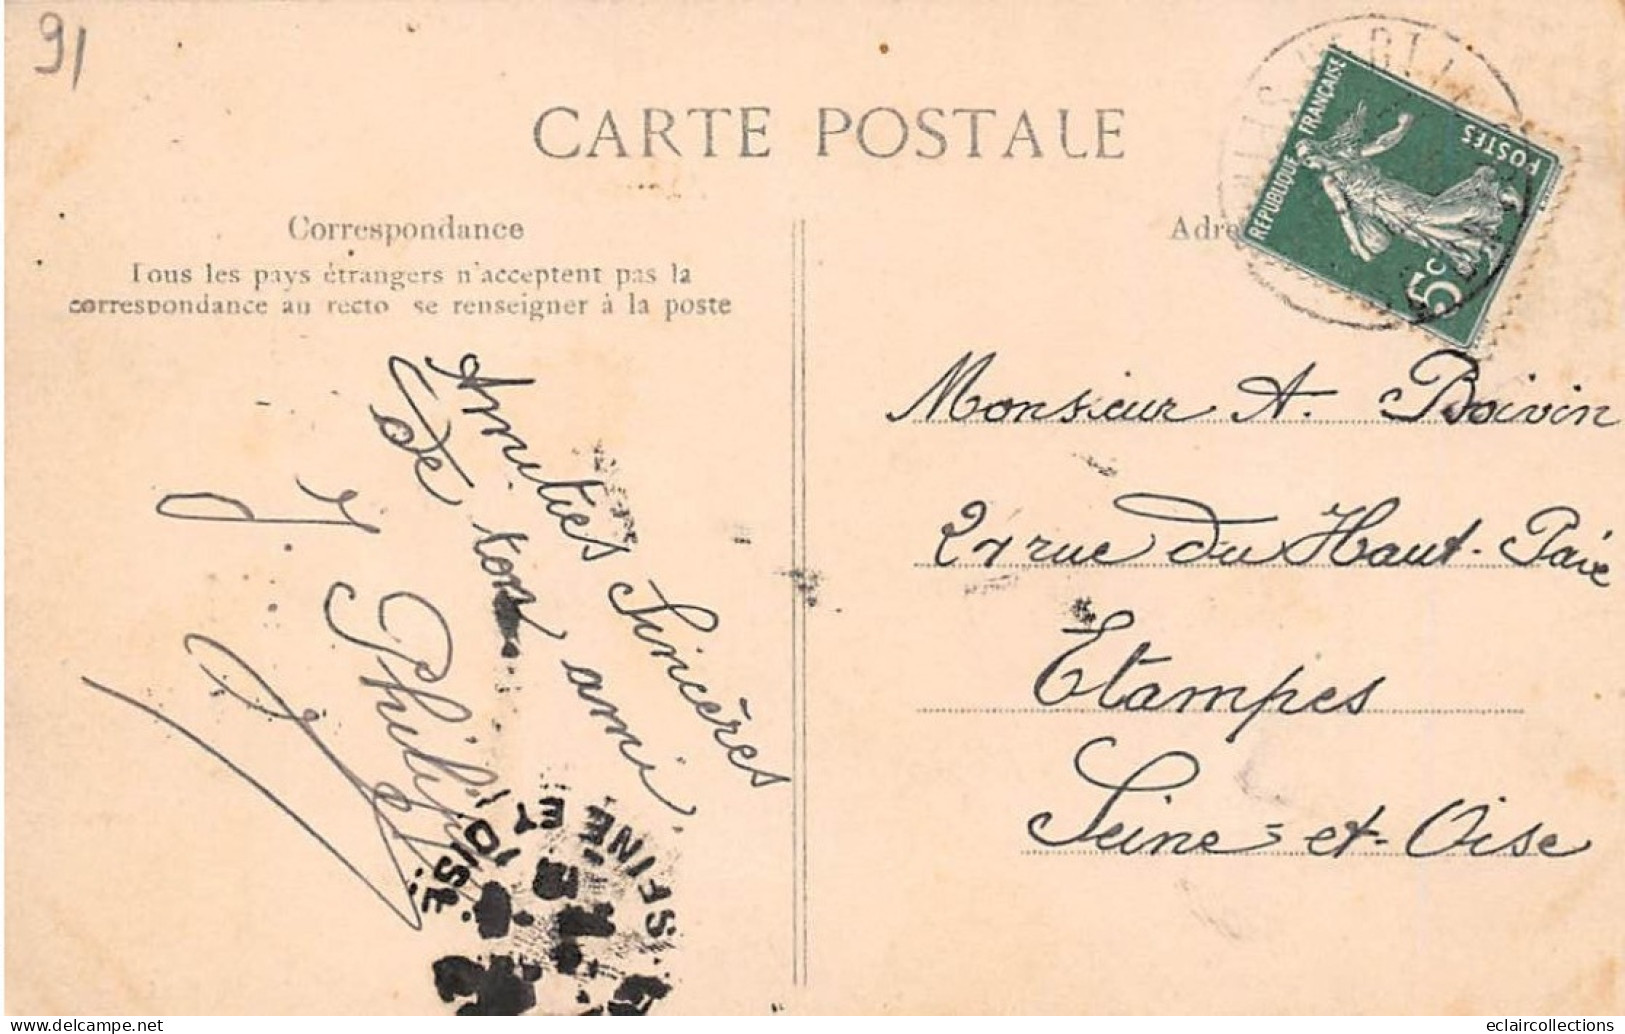 91
CARTE POSTALE
Correspondance
Tous les pays étrangers n'acceptent pas la
correspondance au recto se renseigner à la poste
Amitiés Sincères
de ton ami
J. Philip
SEINE ET OISE
Adre
REPUBLIQUE FRANÇAISE
POSTES
5c
Monsieur A. Boivin
21 rue du Haut-Pavé
Etampes
Seine-et-Oise
www.delcampe.net
eclaircollections